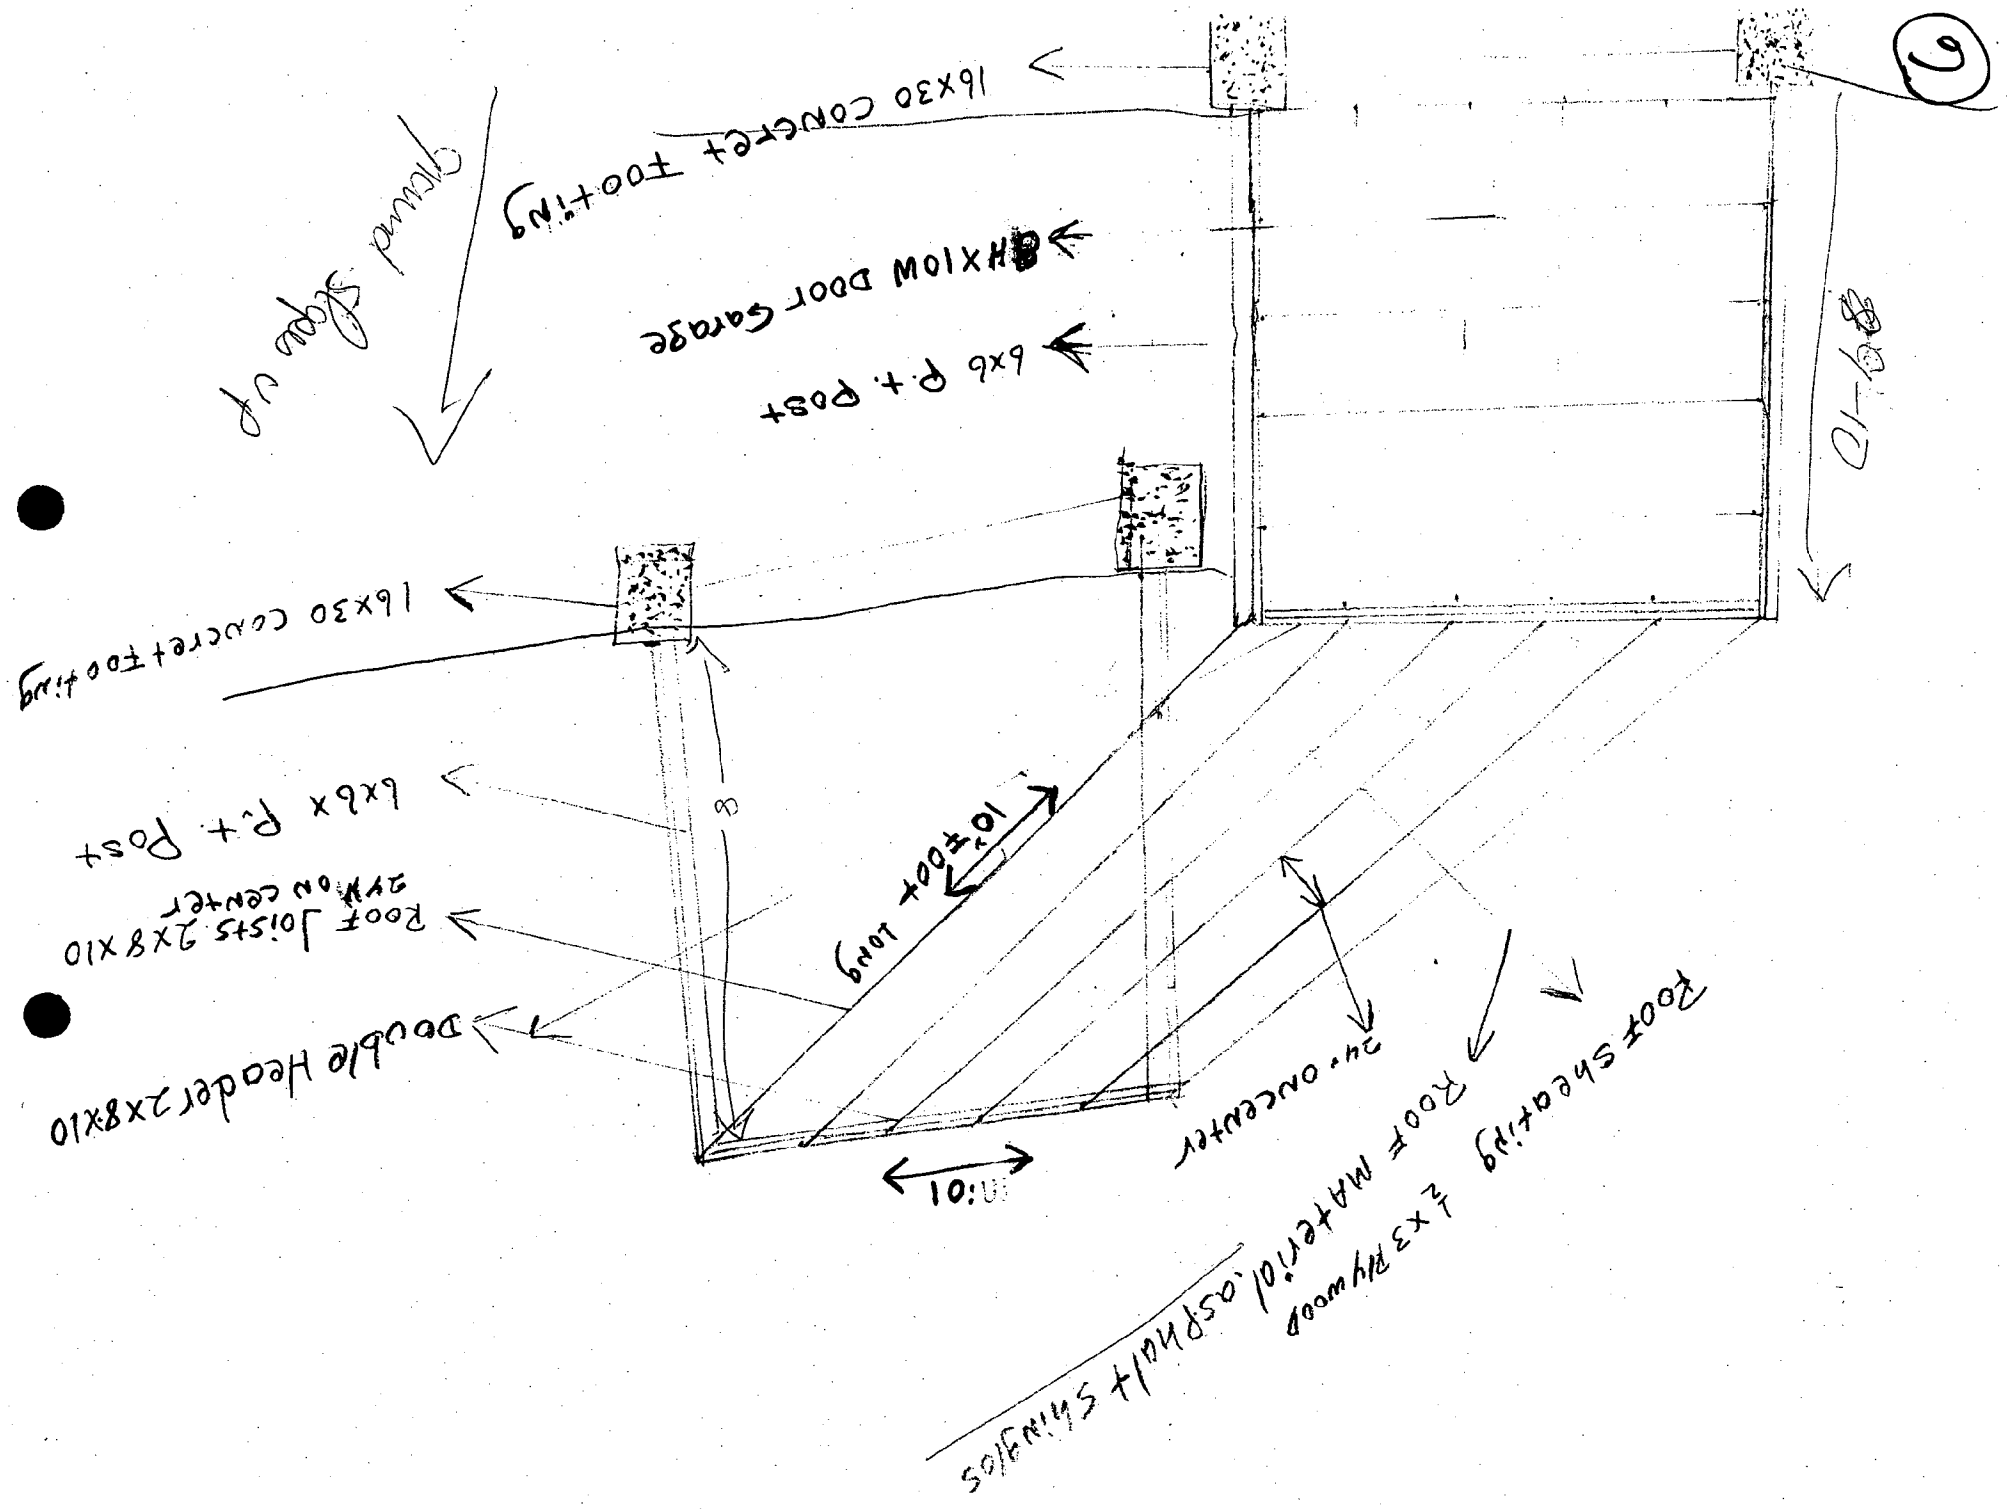 ROOF MAterial. asphalt shingles
1/2 x 3 Plywood
ROOF sheating
10'
24" ON center
Double Header 2x8x10
ROOF Joists 2x8x10
24" ON center
10" FOOt LONg
8
6x6x P.t. Post
16x30 concret Footing
6x6 P.t. Post
8HX10W DOOr Garage
16x30 concret Footing
Ground slopes up